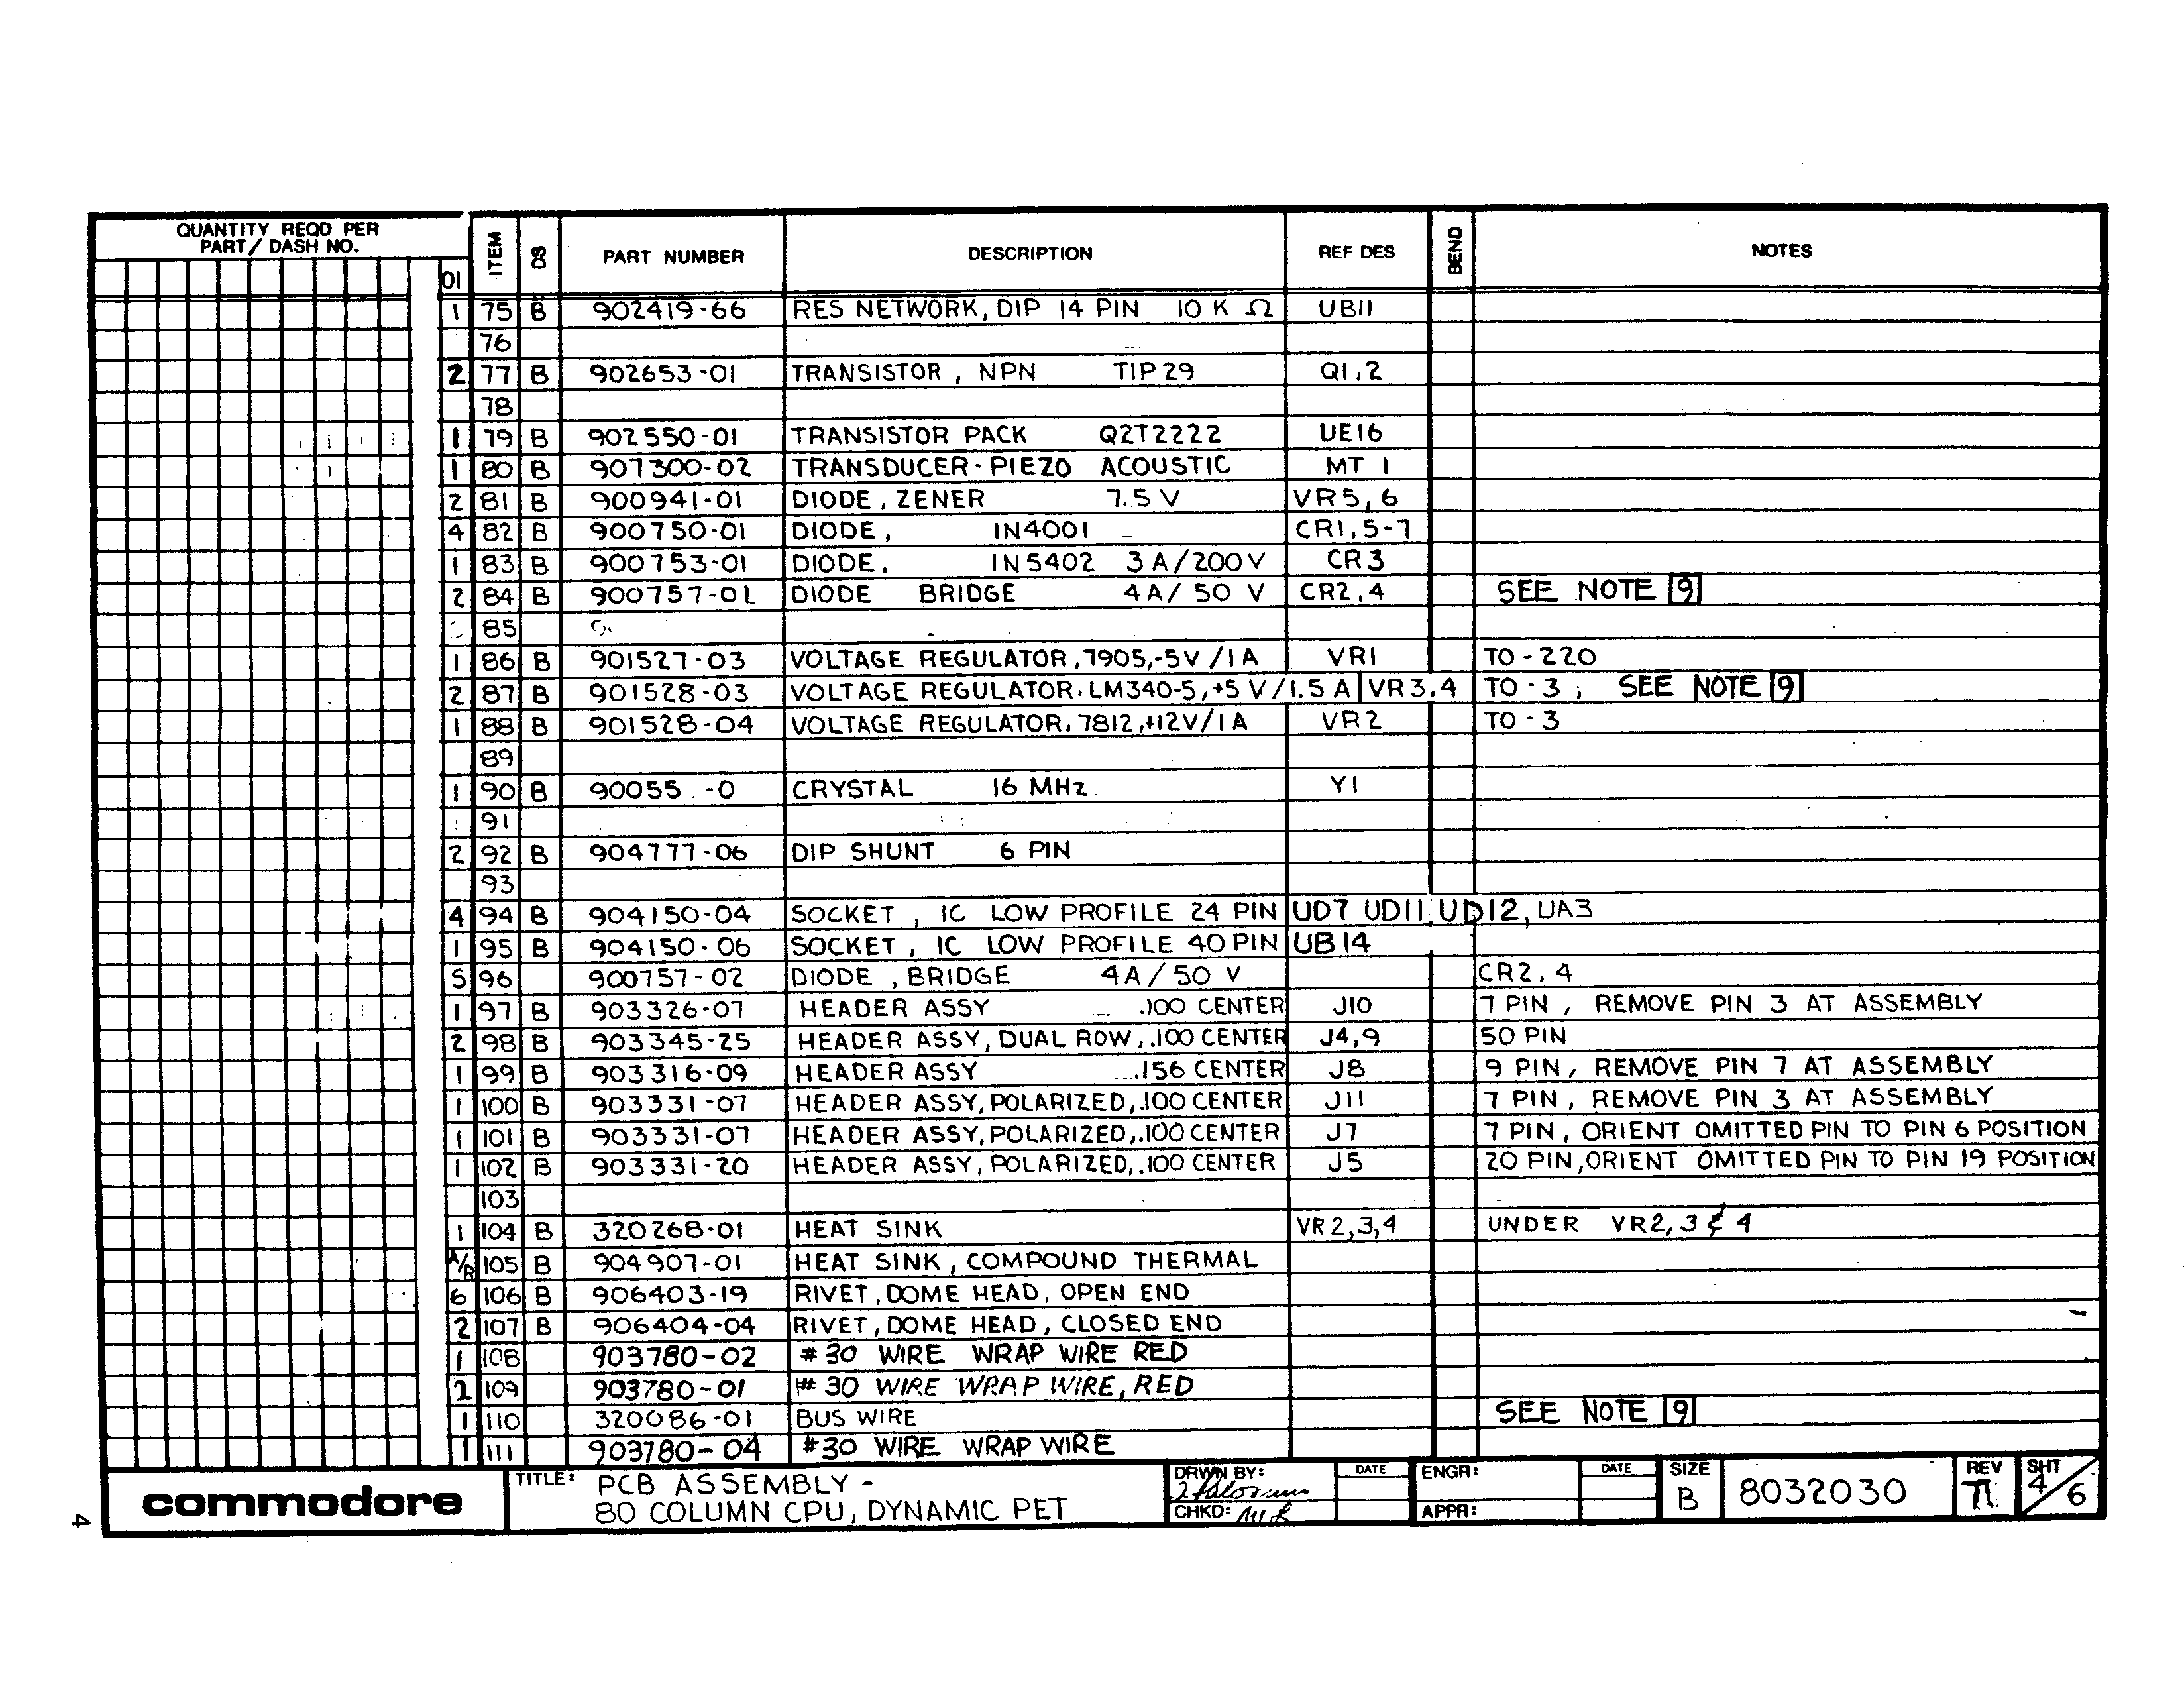 QUANTITY REQD PER
PART/ DASH NO.
01 ITEM DS PART NUMBER DESCRIPTION REF DES BEND NOTES
1 75 B 902419-66 RES NETWORK, DIP 14 PIN 10 K Ω UB11
76
2 77 B 902653-01 TRANSISTOR, NPN TIP 29 Q1,2
78
1 79 B 902550-01 TRANSISTOR PACK Q2T2222 UE16
1 80 B 907300-02 TRANSDUCER-PIEZO ACOUSTIC MT 1
2 81 B 900941-01 DIODE, ZENER 7.5 V VR5,6
4 82 B 900750-01 DIODE, IN4001 CR1,5-7
1 83 B 900753-01 DIODE, IN5402 3 A/200V CR3
2 84 B 900757-01 DIODE BRIDGE 4A/ 50 V CR2,4 SEE NOTE 9
85
1 86 B 901527-03 VOLTAGE REGULATOR, 7905,-5V/1A VR1 TO-220
2 87 B 901528-03 VOLTAGE REGULATOR, LM340-5,+5 V/1.5 A VR3,4 TO-3; SEE NOTE 9
1 88 B 901528-04 VOLTAGE REGULATOR, 7812,+12V/1A VR2 TO-3
89
1 90 B 90055 -0 CRYSTAL 16 MHz Y1
91
2 92 B 904777-06 DIP SHUNT 6 PIN
93
4 94 B 904150-04 SOCKET, IC LOW PROFILE 24 PIN UD7 UD11 UD12, UA3
1 95 B 904150-06 SOCKET, IC LOW PROFILE 40 PIN UB14
S 96 900757-02 DIODE, BRIDGE 4A/50 V CR2,4
1 97 B 903326-07 HEADER ASSY .100 CENTER J10 7 PIN, REMOVE PIN 3 AT ASSEMBLY
2 98 B 903345-25 HEADER ASSY, DUAL ROW, .100 CENTER J4,9 50 PIN
1 99 B 903316-09 HEADER ASSY .156 CENTER J8 9 PIN, REMOVE PIN 7 AT ASSEMBLY
1 100 B 903331-07 HEADER ASSY, POLARIZED, .100 CENTER J11 7 PIN, REMOVE PIN 3 AT ASSEMBLY
1 101 B 903331-07 HEADER ASSY, POLARIZED, .100 CENTER J7 7 PIN, ORIENT OMITTED PIN TO PIN 6 POSITION
1 102 B 903331-20 HEADER ASSY, POLARIZED, .100 CENTER J5 20 PIN, ORIENT OMITTED PIN TO PIN 19 POSITION
103
1 104 B 320268-01 HEAT SINK VR2,3,4 UNDER VR2,3 & 4
A/R 105 B 904907-01 HEAT SINK, COMPOUND THERMAL
6 106 B 906403-19 RIVET, DOME HEAD, OPEN END
2 107 B 906404-04 RIVET, DOME HEAD, CLOSED END
1 108 903780-02 #30 WIRE WRAP WIRE RED
2 109 903780-01 #30 WIRE WRAP WIRE, RED
1 110 320086-01 BUS WIRE SEE NOTE 9
1 111 903780-04 #30 WIRE WRAP WIRE
commodore TITLE: PCB ASSEMBLY -
80 COLUMN CPU, DYNAMIC PET
DRWN BY: DATE ENGR: DATE SIZE B 8032030 REV SHT 4/6
CHKD: APPR:
4